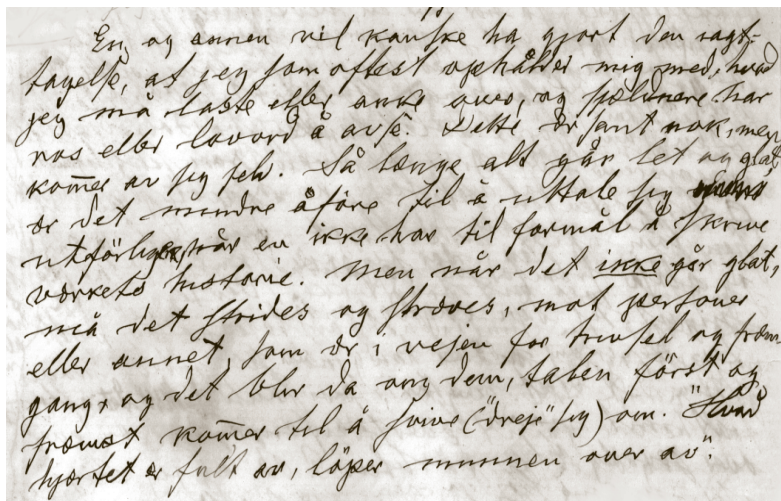 En og annen vil kanske ha gjort den iagt-
tagelse, at jeg som oftest opholder mig med, hvad
jeg må laste eller anke over, og sjeldnere har
ros eller lovord å avse. Dette er sant nok, men
kom̅er av sig selv. Så længe alt går let og glat,
er det mindre åföre til å uttale sig
utförlig, når en ikke har til formål å skrive
værkets historie. Men når det ikke går glat,
må det strides og stræves, mot personer
eller annet, som er i vejen for trivsel og frem-
gang, og det blir da om dem, talen först og
fremst kom̅er til å svive ("dreje" sig) om. "Hvad
hjertet er fult av, löper munnen over av".